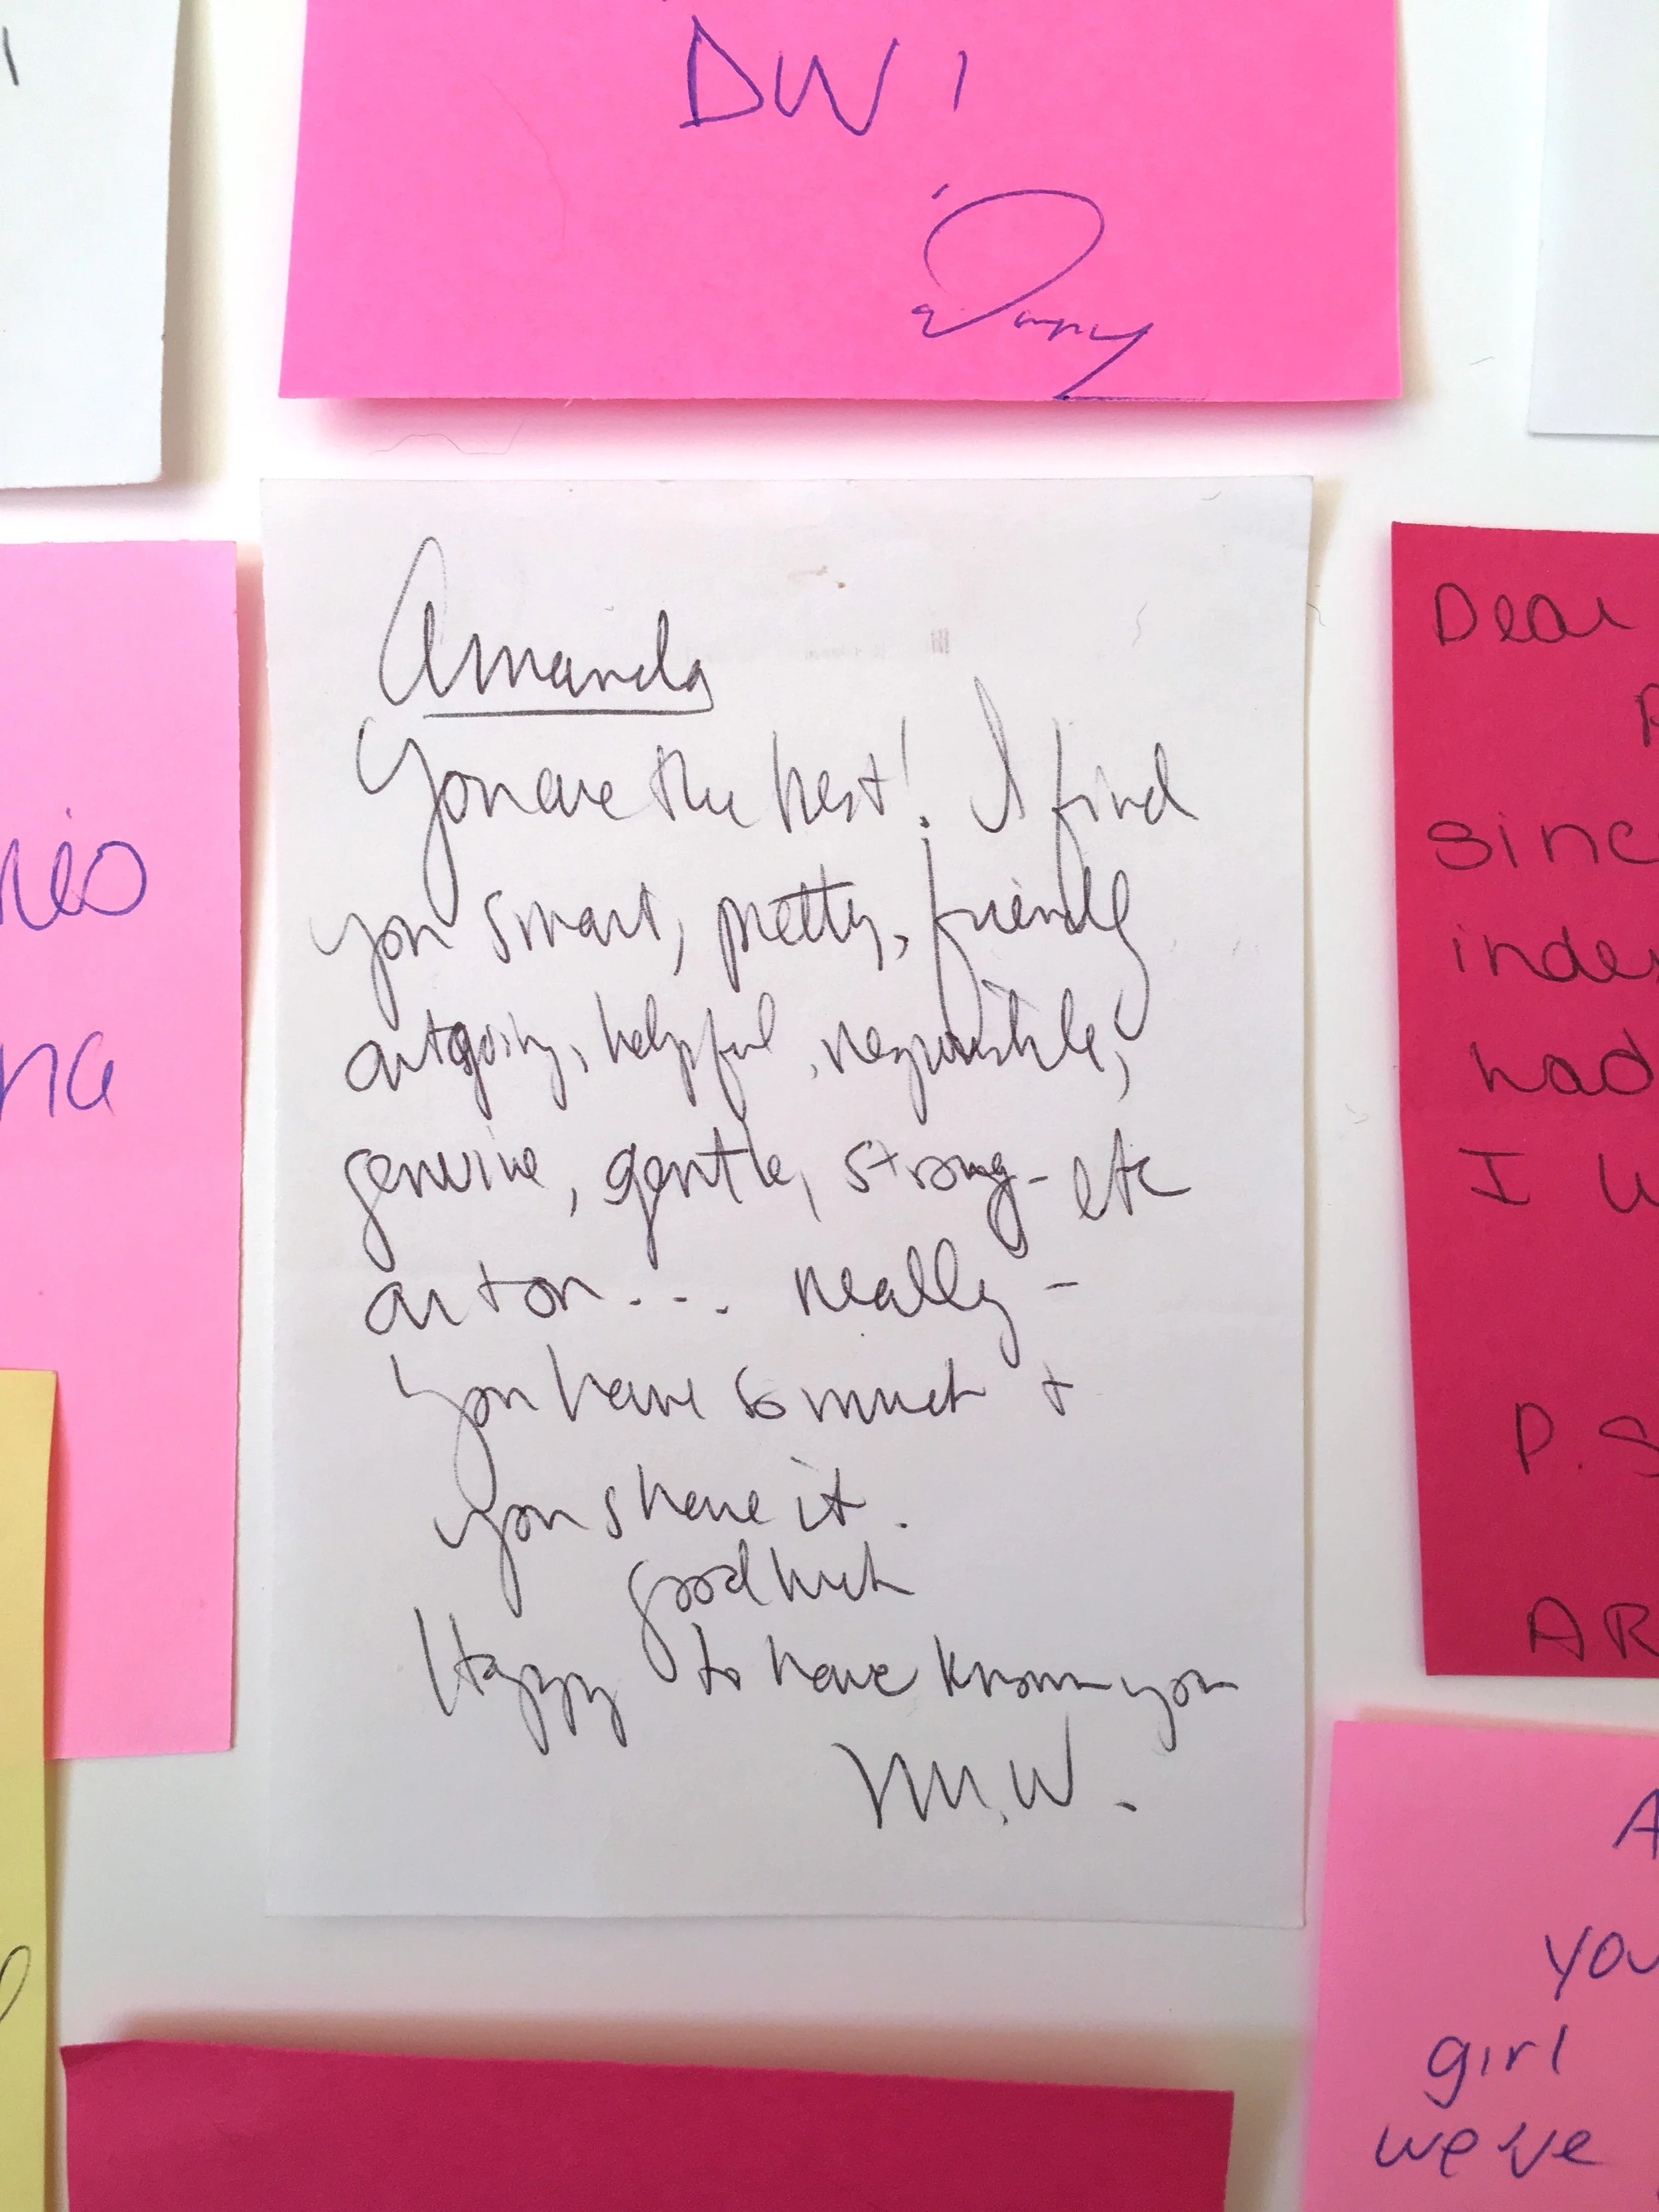 DW!
Amanda
You are the best! I find
you smart, pretty, friendly
outgoing, helpful, responsible,
genuine, gentle, strong - etc
on + on... really -
you have so much +
you share it.
good luck
Happy to have known you
M.W.
Dear
since
had
I
P.S
AR
A
you
girl
we've